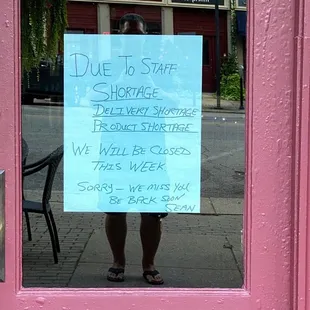 DUE TO STAFF
SHORTAGE
DELIVERY SHORTAGE
PRODUCT SHORTAGE
WE WILL BE CLOSED
THIS WEEK
SORRY - WE MISS YOU
BE BACK SOON
SEAN